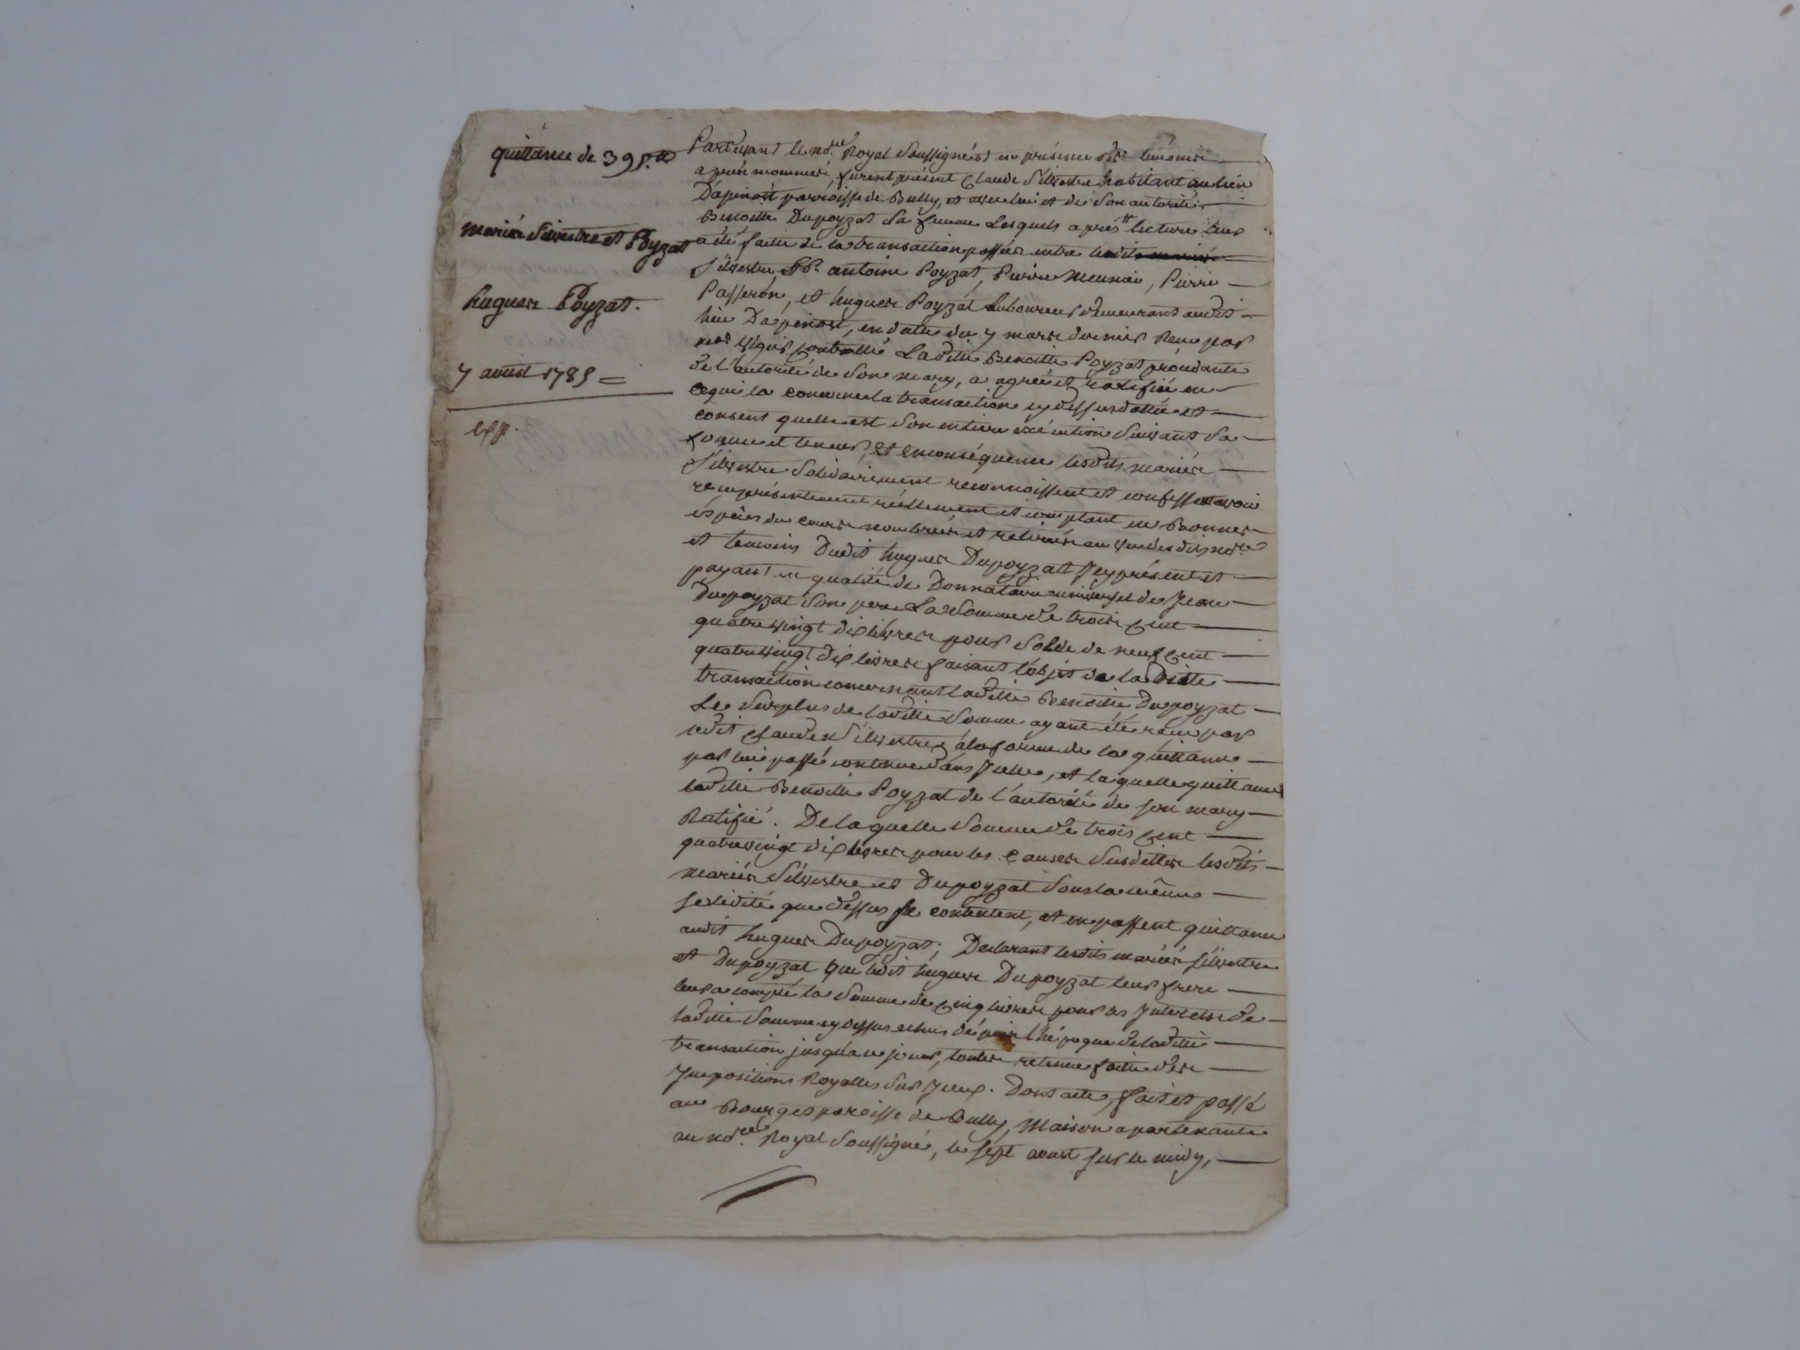 quittance de 395.ᵗᵗ
mariés Silvestre et Poyzat
hugues Poyzat.
7 aoust 1785 =
exp.
Pardevant le no.ʳᵉ Royal soussigné et en présence des temoins
après nommés, furent présent Claude Silvestre habitant au lieu
Dapinost parroisse de Bully, et avec lui et de son autorité
Benoitte Dupoyzat sa femme Lesquels après lecture leur
a été faitte de la transaction passée entre lesdits mariés
Silvestre, antoine Poyzat, Pierre Meunier, Pierre
Passeron, et hugues Poyzat Laboureurs demeurant audit
lieu Dapinost, en datte du 7 mars dernier Reçue par
controllé Laditte Benoitte Poyzat procédante
de l'autorité de son mary, a agréé et ratifié en
cequi la concerne la transaction cy dessus dattée et
consent quelle est son entiere exécution suivant sa
forme et teneur, et en conséquence lesdits mariés
Silvestre solidairement reconnoissent et confessent avoir
reçu présentement réellement et comptant en Bonnes
éspèces du cours nombrées et retirées au vu desdits no.ʳᵉ
et temoins Dudit hugues Dupoyzat Jcy présent et
payant en qualité de Donnataire universel de Jean
Dupoyzat son pere La somme de trois cent
quatrevingt dix livres pour solde de neuf cent
quatrevingt dix livres faisant l'objet de la Ditte
transaction concernant laditte Benoitte Dupoyzat
Le surplus de laditte somme ayant été reçu par
ledit Claude Silvestre à la forme de la quittance
par lui passé contenue dans Jcelle, et laquelle quittance
laditte Benoitte Poyzat de l'autorité de son mary
Ratifié. De laquelle somme de trois cent
quatrevingt dix livres pour les causes susdittes lesdits
mariés Silvestre et Dupoyzat sous la même
solidité que dessus se contentent, et en passent quittance
audit hugues Dupoyzat; Declarant lesdits mariés Silvestre
et Dupoyzat que ledit hugues Dupoyzat leur frere
leur a compté la somme de cinq livres pour les Jnterets de
laditte somme cy dessus échus depuis l'hépoque de laditte
transaction jusqu'a ce jour, toutes retenue faitte des
Jmpositions Royalles sur Jceux. Dont acte, fait et passé
au Bourg et paroisse de Bully, Maison apartenante
au no.ʳᵉ Royal soussigné, le sept aoust sur le midy,